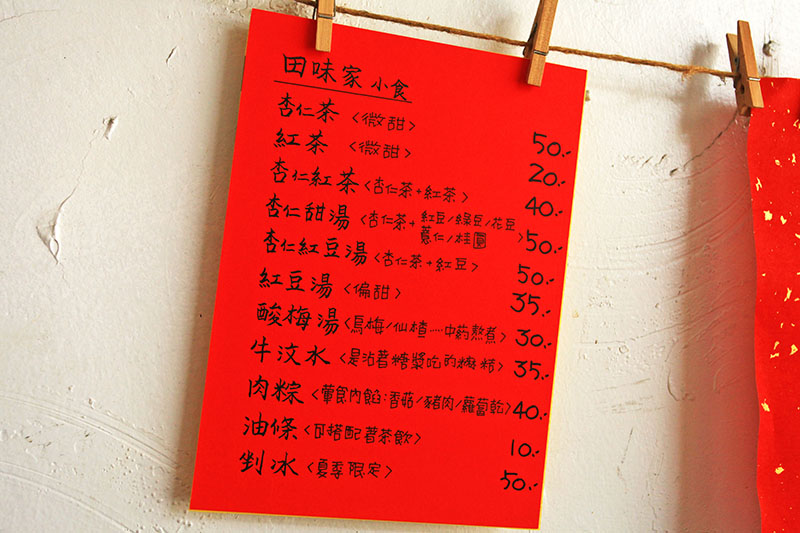 田味家 小食
杏仁茶 〈微甜〉 50.-
紅茶 〈微甜〉 20.-
杏仁紅茶 〈杏仁茶+紅茶〉 40.-
杏仁甜湯 〈杏仁茶+紅豆/綠豆/花豆
薏仁/桂圓〉 50.-
杏仁紅豆湯 〈杏仁茶+紅豆〉 50.-
紅豆湯 〈偏甜〉 35.-
酸梅湯 〈烏梅/仙楂……中药熬煮〉 30.-
牛汶水 〈是沾著糖漿吃的麻糬〉 35.-
肉粽 〈葷食內餡:香菇/豬肉/蘿蔔乾〉 40.-
油條 〈可搭配著茶飲〉 10.-
剉冰 〈夏季限定〉 50.-